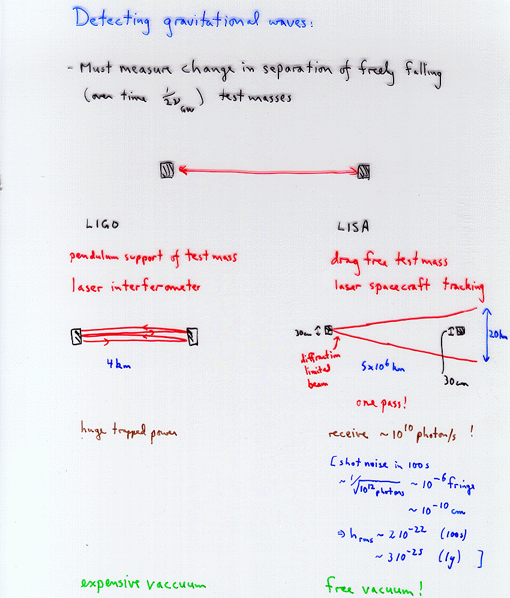 Detecting gravitational waves:
- Must measure change in separation of freely falling
(over time 1/2ν_GW) test masses
LIGO
pendulum support of test mass
laser interferometer
4 km
huge trapped power
expensive vaccuum
LISA
drag free test mass
laser spacecraft tracking
30cm
20km
diffraction
limited
beam
5x10⁶ km
30cm
one pass!
receive ~ 10¹⁰ photon/s !
[ shot noise in 100s
~ 1/√10¹² photons ~ 10⁻⁶ fringe
~ 10⁻¹⁰ cm
⇒ h_rms ~ 2 10⁻²² (100s)
~ 3 10⁻²⁵ (1y) ]
free vacuum!